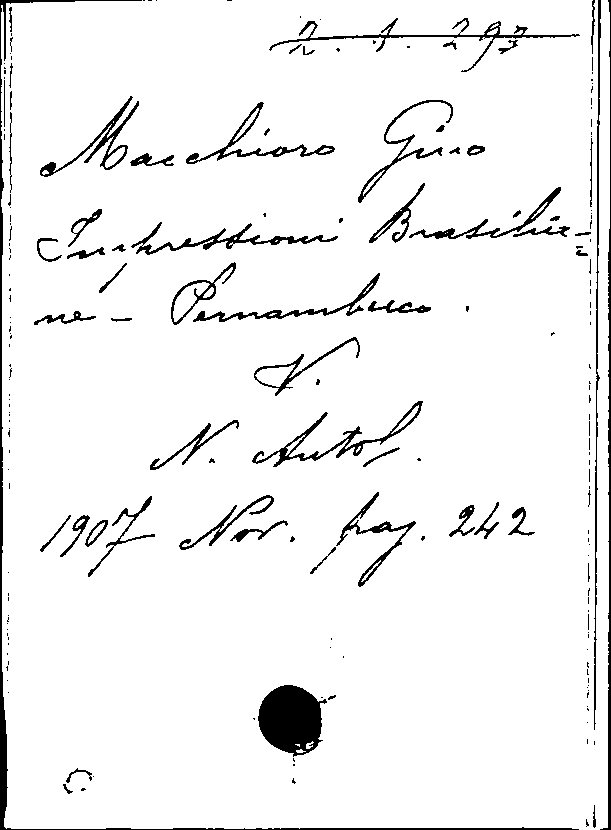 2. 1. 293
Macchioro Gino
Impressioni Brasilia=
ne - Pernambuco.
V.
N. Antol.
1907 Nov. pag. 242